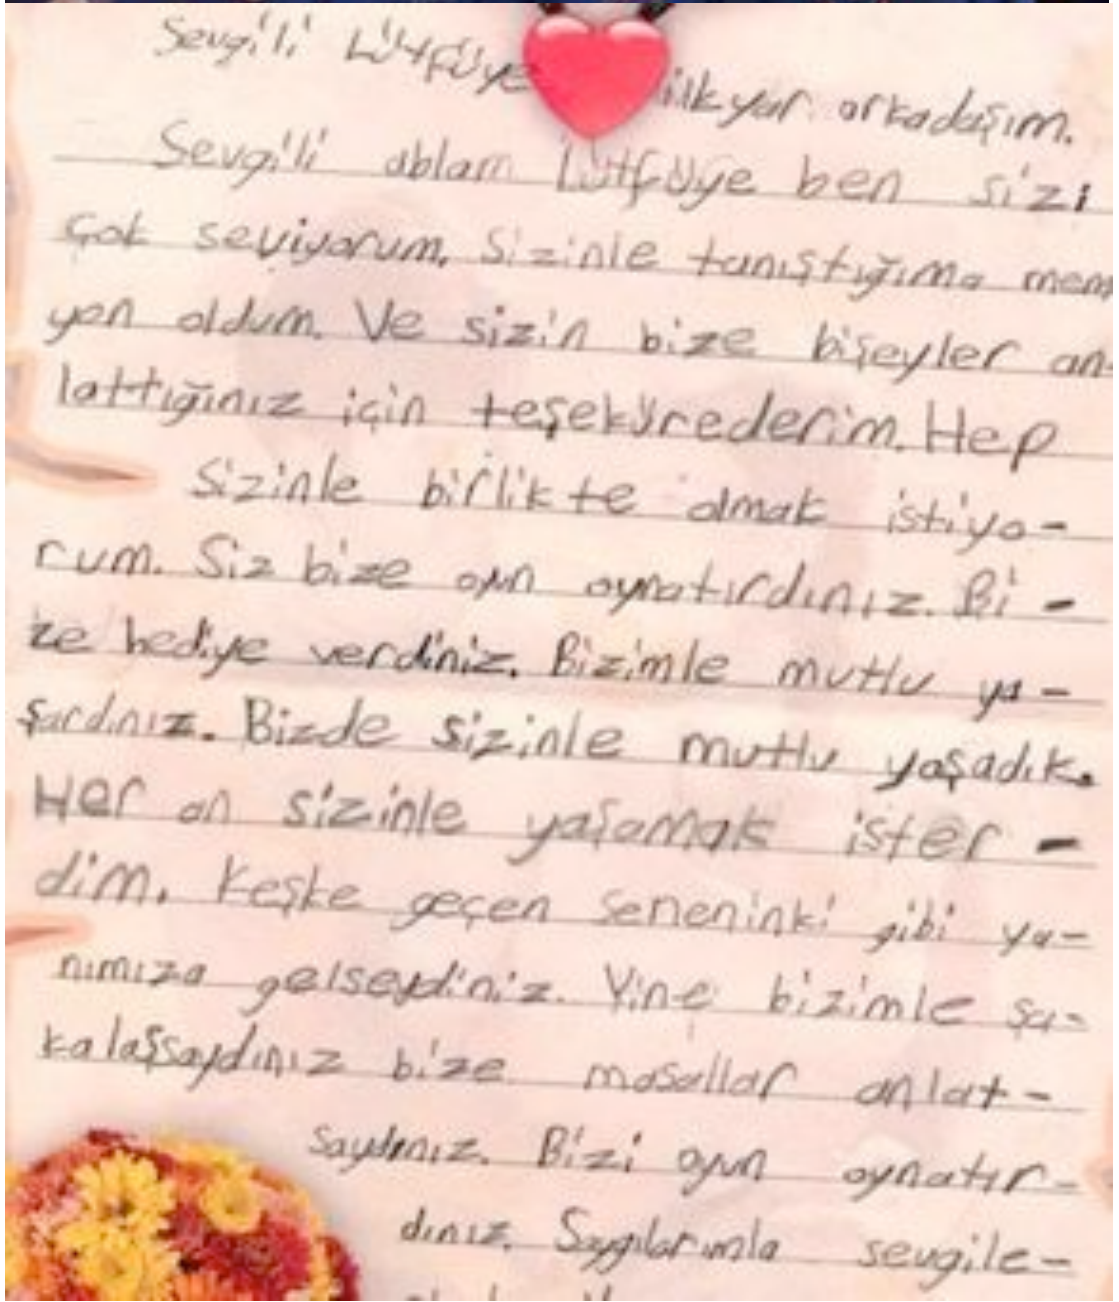 Sevgili Lütfüye ilkyar arkadaşım.
Sevgili ablam Lütfüye ben sizi
çok seviyorum. Sizinle tanıştığıma mem
yen oldum. Ve sizin bize bişeyler an-
lattığınız için teşekürederim. Hep
Sizinle birlikte olmak istiyo-
rum. Siz bize oyn oynatırdınız. Bi-
ze hediye verdiniz. Bizimle mutlu ya-
şardınız. Bizde sizinle mutlu yaşadık.
Her an sizinle yaşamak ister-
dim. Keşke geçen seneninki gibi ya-
nımıza gelseydiniz. Yine bizimle şa-
kalaşsaydınız bize masallar anlat-
saydınız. Bizi oyun oynatır-
dınız. Saygılarımla sevgile-